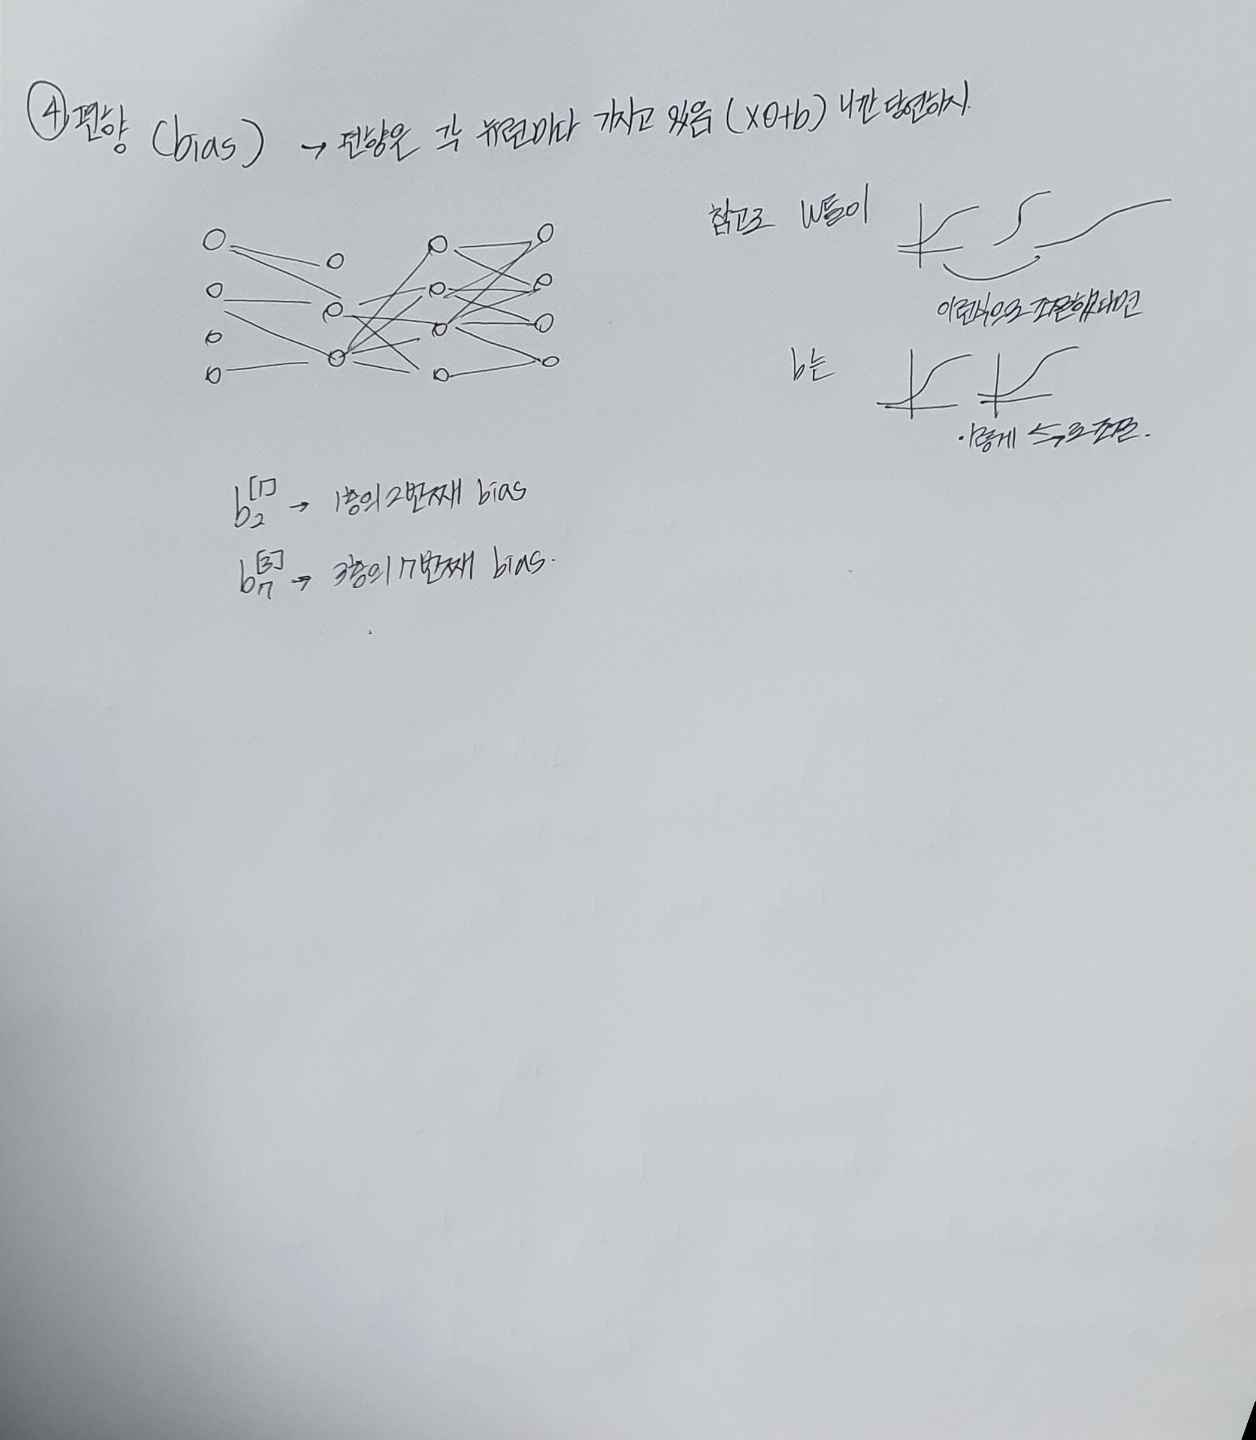 ④ 편향 (bias) → 편향은 각 뉴런마다 가지고 있음 (xθ+b) 니깐 당연하지.
참고로 W들이
이런식으로 조절했다면
b는
이렇게 축을 조절.
b₂^[1] → 1층의 2번째 bias
b₇^[3] → 3층의 7번째 bias.